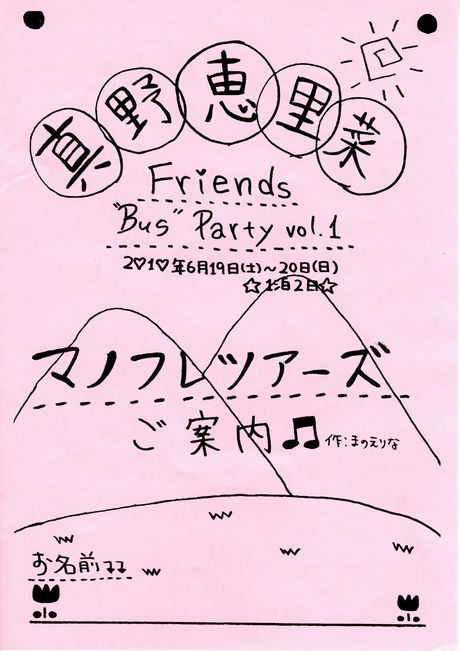 真野恵里菜
Friends
"Bus" Party vol.1
2♡1♡年6月19日(土)~20日(日)
☆1泊2日☆
マノフレツアーズ
ご案内♫
作:まのえりな
お名前